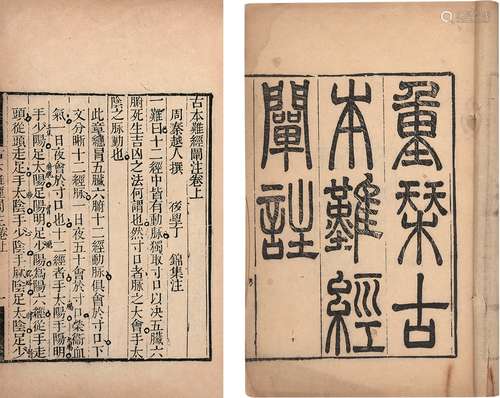 重栞古
本難經
闡註
古本難經闡注卷上
周秦越人撰 後學丁 錦集注
一難曰十二經中皆有動脈獨取寸口以決五臟六
腑死生吉凶之法何謂也然寸口者脈之大會手太
陰之脈動也
此章總冒五臟六腑十二經動脈俱會於寸口下
文分晰十二經脈一日夜五十會於寸口榮衛血
氣一日夜會於寸口也十二經者手太陽手陽明
手少陽足太陽足陽明足少陽為陽六經從手走
頭從頭走足手太陰手少陰手厥陰足太陰足少